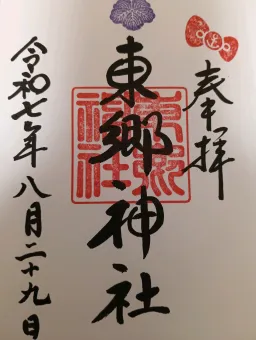 奉拝
東郷神社
令和七年八月二十九日
東郷神社